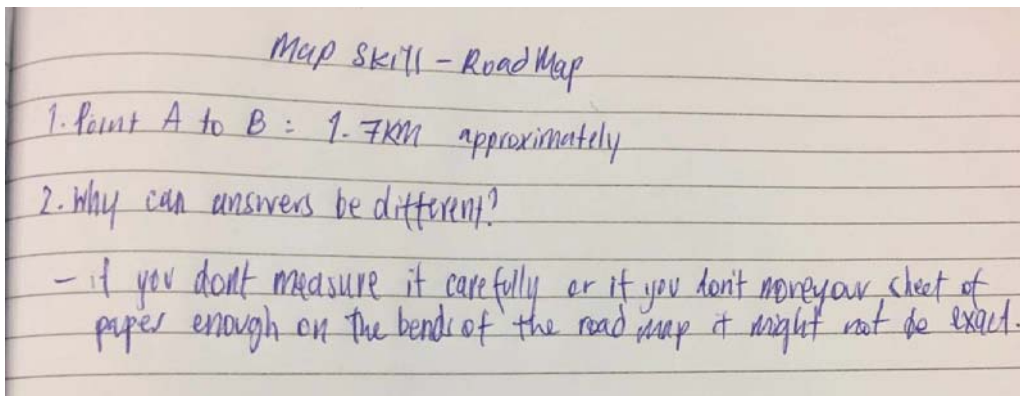 Map Skill - Road Map
1. Point A to B : 1.7KM approximately
2. Why can answers be different?
- if you dont measure it carefully or if you don't move your sheet of
paper enough on the bends of the road map it might not be exact.